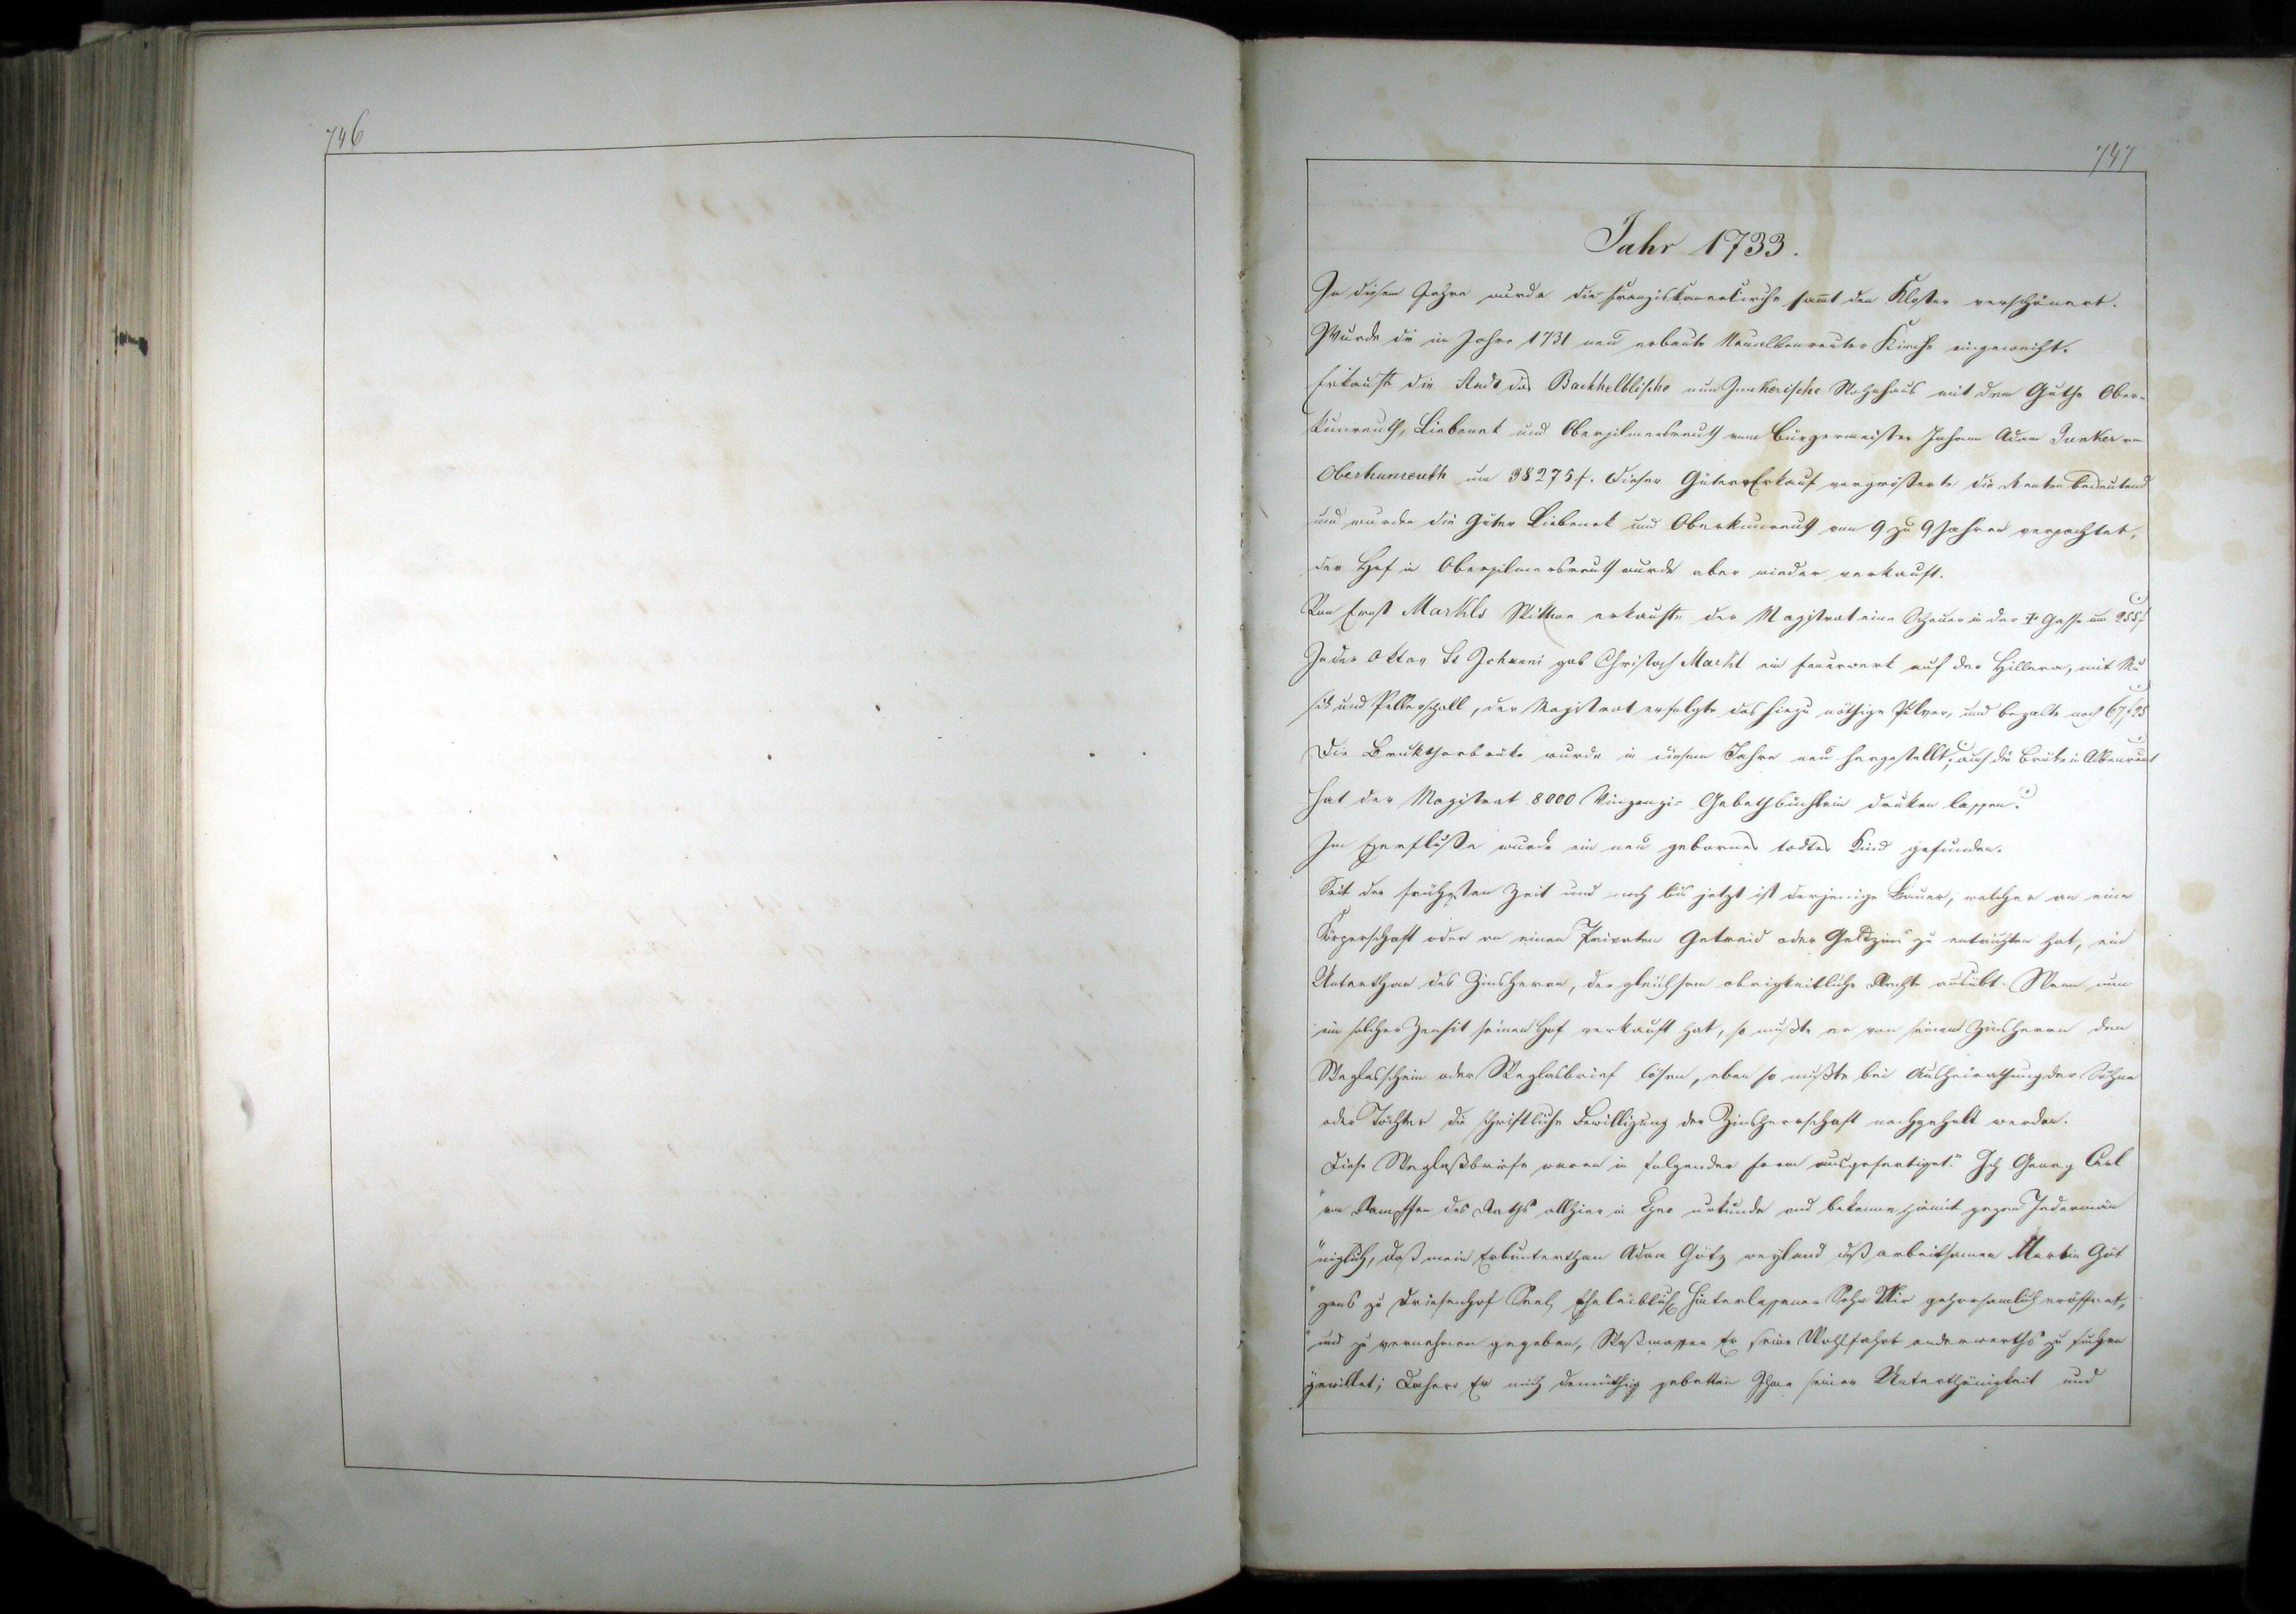 746
747
Jahr 1733.
In diesem Jahre wurde die Franziskanerkirche samt den Kloster verschönert.
Wurde die im Jahre 1731 neu erbaute Neualbenreuter Kirche eingeweiht.
Erkaufte die Stadt das Bachhelblische nun Junkerische Stokhaus mit dem Guthe Ober-
kunreuth, Liebenek und Oberpilmersreuth vom Bürgermeister Johann Adam Junker von
Oberkunreuth um 38275 f. Dieser Güter-Erkauf vergrößerte die Renten bedeutend
und wurden die Güter Liebenek und Oberkunreuth von 9 zu 9 Jahren verpachtet,
der Hof in Oberpilmersreuth wurde aber wieder verkauft.
Von Ernst Markls Wittwe erkaufte der Magistrat eine Scheuer in der Gasse um 255 f
In der Oktav St Johanni gab Christoph Markl ein Feuerwerk auf der Hillera, mit Mu
sik und Pöllerschall, der Magistrat erfolgte das hiezu nöthige Pulver, und bezalte noch 67 f 25
Die Brukthorbrüke wurde in diesem Jahre neu hergestellt, auch die Brüke in Albenreut
Hat der Magistrat 8000 Vinzenzi-Gebethbüchlein druken lassen.
Im Egerfluße wurde ein neu gebornes todtes Kind gefunden.
Seit der frühesten Zeit und noch bis jetzt ist derjenige Bauer, welcher an eine
Körperschaft oder an einen Privaten Getreid oder Geldzins zu entrichten hat, ein
Unterthan des Zinsherrn, der gleichsam obrigkeitliche Rechte ausübt. Wenn nun
ein solcher Zensit seinen Hof verkauft hat, so mußte er von seinem Zinsherrn den
Weglasschein oder Weglasbrief lösen, eben so mußte bei Ausheirathung der Söhne
oder Töchter die schriftliche Bewilligung der Zinsherrschaft nachgeholt werden.
Diese Weglaßbriefe waren in folgender Form ausgefertiget: "Ich Georg Carl
"von Dampffen des Raths allhier in Eger urkunde und bekenne hiemit gegen Jedermän
"niglich, daß mein Erbunterthan Adam Götz weyland deß arbeitsamen Martin Göt
"zens zu Driesenhof Seel. Eheleiblich hinterlassener Sohn Mir gehorsamlich eröffnet,
"und zu vernehmen gegeben, Waßmassen Er seine Wohlfahrt anderwerths zu suchen
gewillet; Dahero Er mich demüthig gebetten Ihme seiner Unterthänigkeit und